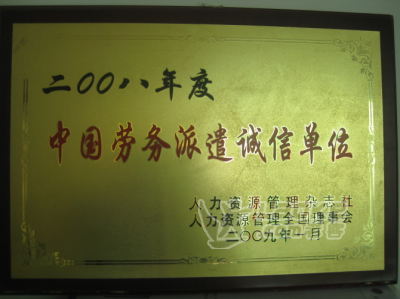 二〇〇八年度
中国劳务派遣诚信单位
人力资源管理杂志社
人力资源管理全国理事会
二〇〇九年一月